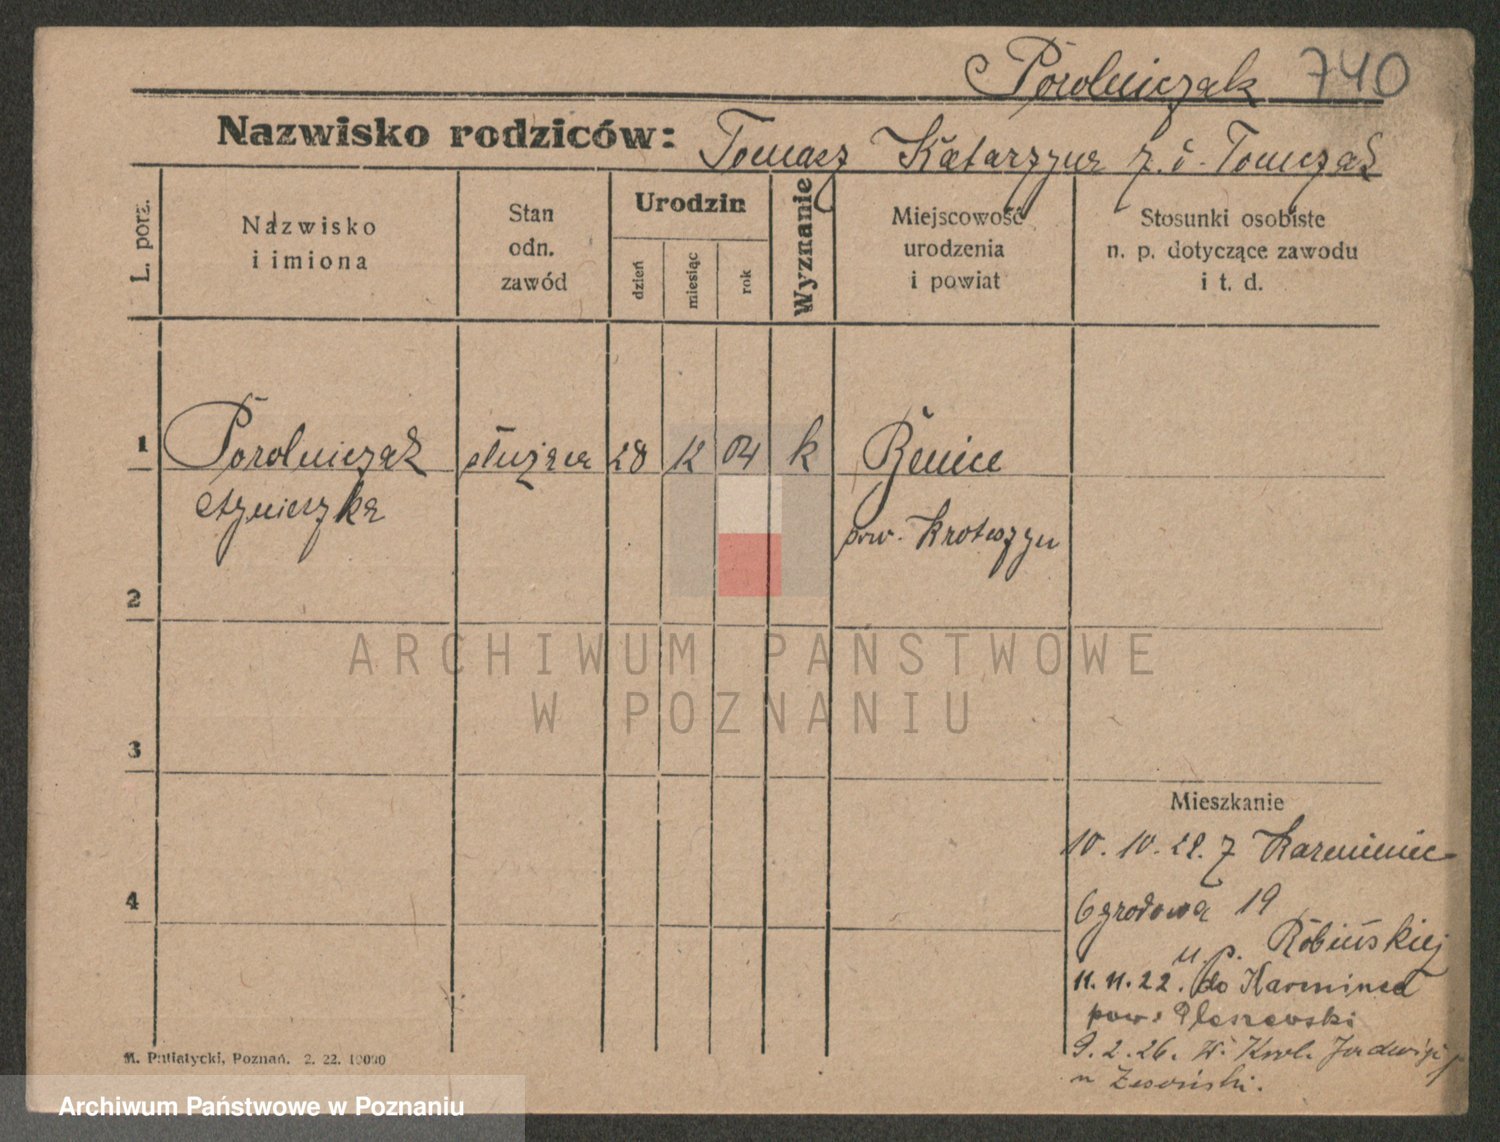 Porolniczak 740
Nazwisko rodziców: Tomasz Katarzyna z d. Tomczak
L. porz.
Nazwisko
i imiona
Stan
odn.
zawód
Urodzin
dzień
miesiąc
rok
Wyznanie
Miejscowość
urodzenia
i powiat
Stosunki osobiste
n. p. dotyczące zawodu
i t. d.
1 Porolniczak służąca 28 12 04 k Benice
Agnieszka pow. Krotoszyn
2
3
Mieszkanie
10. 10. 22. z Karminiec
4
Ogrodowa 19
u. p. Robińskiej
11. 11. 22. do Karmińca
pow: Pleszewski
9. 2. 26. W. Król. Jadwigi
u
M. Putiatycki, Poznań. 2. 22. 10000
ARCHIWUM PAŃSTWOWE
W POZNANIU
Archiwum Państwowe w Poznaniu